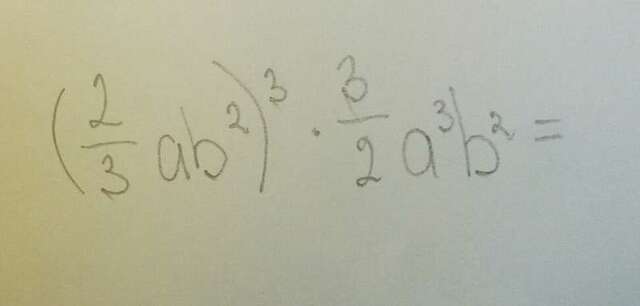 (2/3 ab²)³ · 3/2 a³b² =